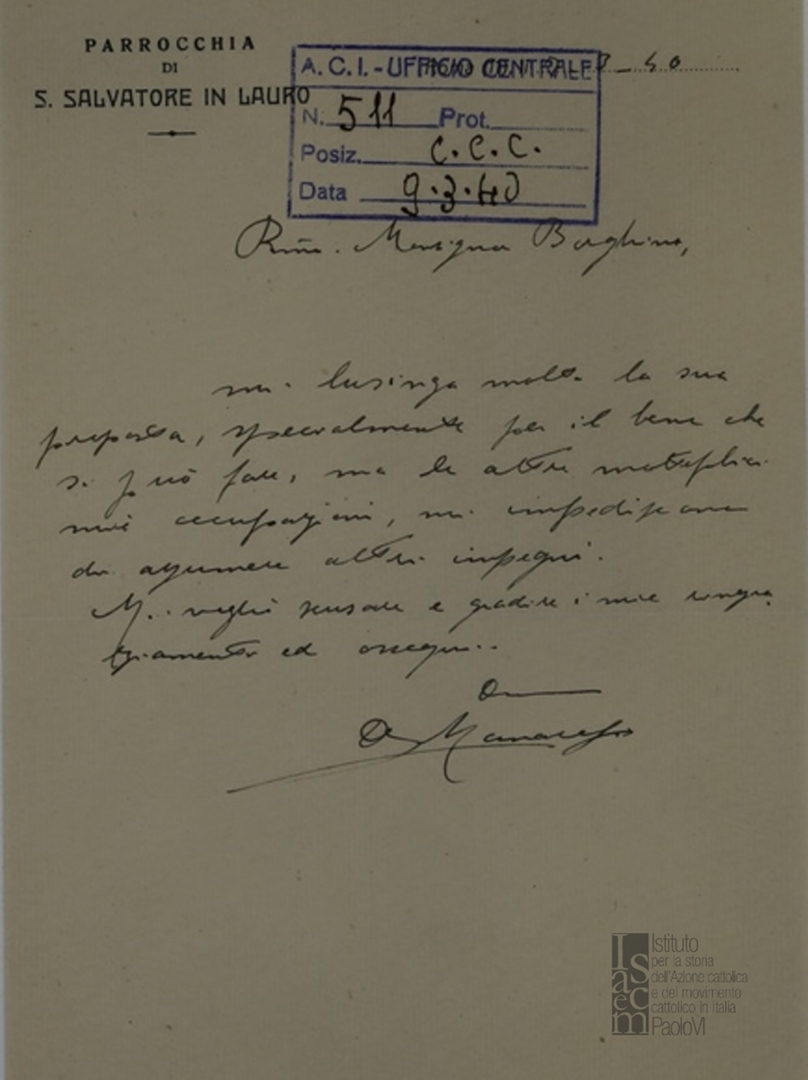 PARROCCHIA
DI
S. SALVATORE IN LAURO
A. C. I. - UFFICIO CENTRALE
N. 511 Prot.
Posiz. C.C.C.
Data 9.3.40
40
Rmo. Monsignor Borghino,
mi lusinga molto la sua
proposta, specialmente per il bene che
si può fare, ma le altre molteplici
mie occupazioni, mi impediscono
di assumere altri impegni.
Mi voglia scusare e gradire i miei ringra
ziamenti ed ossequi.
Istituto
per la storia
dell'Azione cattolica
e del movimento
cattolico in Italia
PaoloVI
Isacem